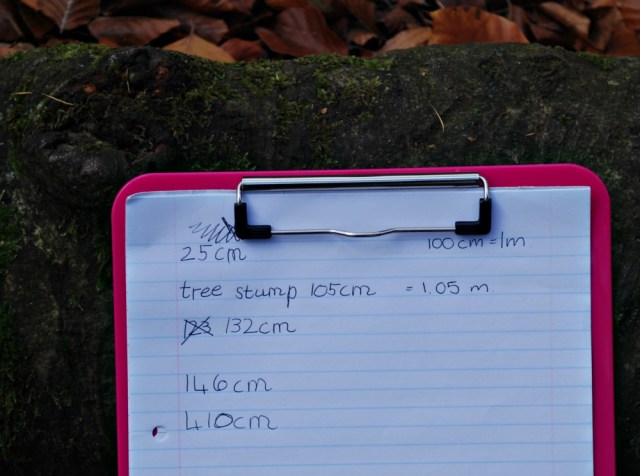 100cm = 1m
25cm
tree stump 105cm = 1.05 m
132cm
146cm
410cm